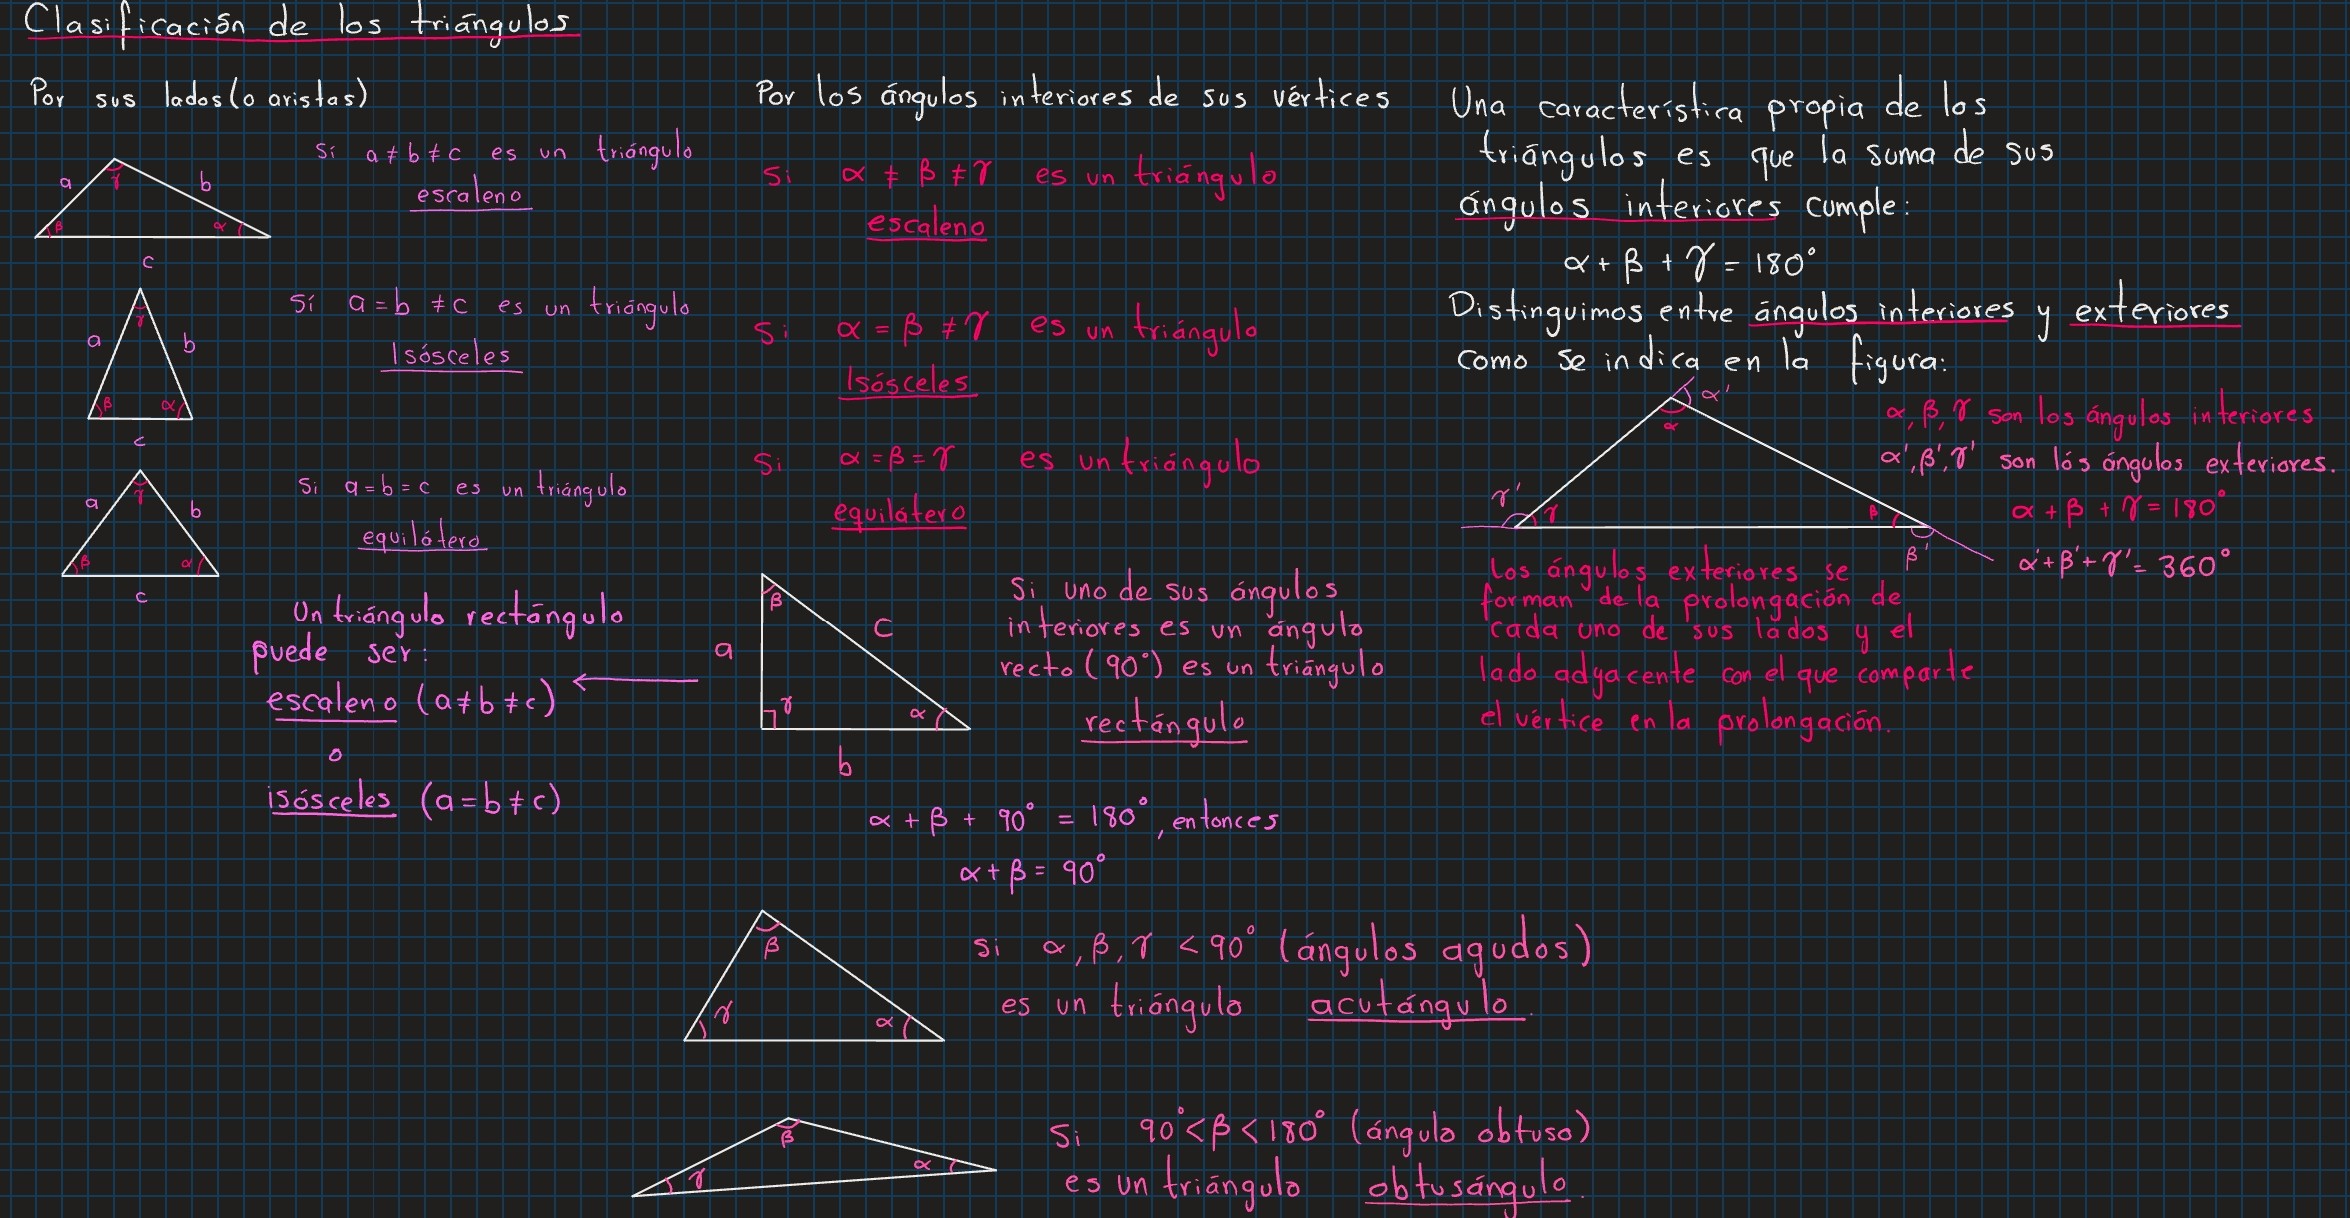 Clasificación de los triángulos
Por sus lados (o aristas)
Si a ≠ b ≠ c es un triángulo
escaleno
a
b
γ
β
α
c
Si a = b ≠ c es un triángulo
Isósceles
a
b
γ
β
α
c
Si a = b = c es un triángulo
equilátero
a
b
γ
β
α
c
Un triángulo rectángulo
puede ser:
escaleno (a ≠ b ≠ c)
o
isósceles (a = b ≠ c)
Por los ángulos interiores de sus vértices
Si α ≠ β ≠ γ es un triángulo
escaleno
Si α = β ≠ γ es un triángulo
Isósceles
Si α = β = γ es un triángulo
equilátero
β
a
c
γ
α
b
Si uno de sus ángulos
interiores es un ángulo
recto (90°) es un triángulo
rectángulo
α + β + 90° = 180°, entonces
α + β = 90°
β
γ
α
Si α, β, γ < 90° (ángulos agudos)
es un triángulo acutángulo.
β
γ
α
Si 90° < β < 180° (ángulo obtuso)
es un triángulo obtusángulo.
Una característica propia de los
triángulos es que la suma de sus
ángulos interiores cumple:
α + β + γ = 180°
Distinguimos entre ángulos interiores y exteriores
como se indica en la figura:
α'
α
γ'
γ
β
β'
α, β, γ son los ángulos interiores
α', β', γ' son los ángulos exteriores.
α + β + γ = 180°
α' + β' + γ' = 360°
Los ángulos exteriores se
forman de la prolongación de
cada uno de sus lados y el
lado adyacente con el que comparte
el vértice en la prolongación.